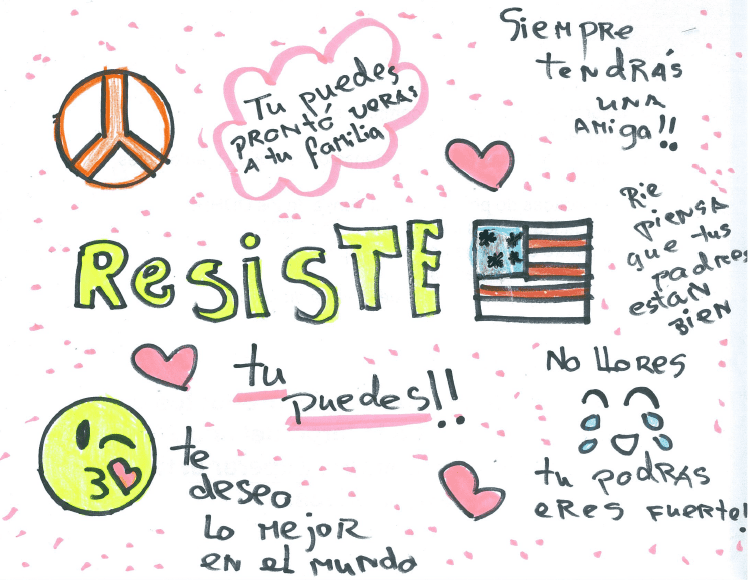 Siempre
tendrás
una
amiga!!
Tu puedes
prontó veras
a tu familia
Rie
piensa
que tus
padres
estan
bien
ResisTE
tu
puedes!!
No llores
tu podras
eres fuerte!
te
deseo
lo mejor
en el mundo